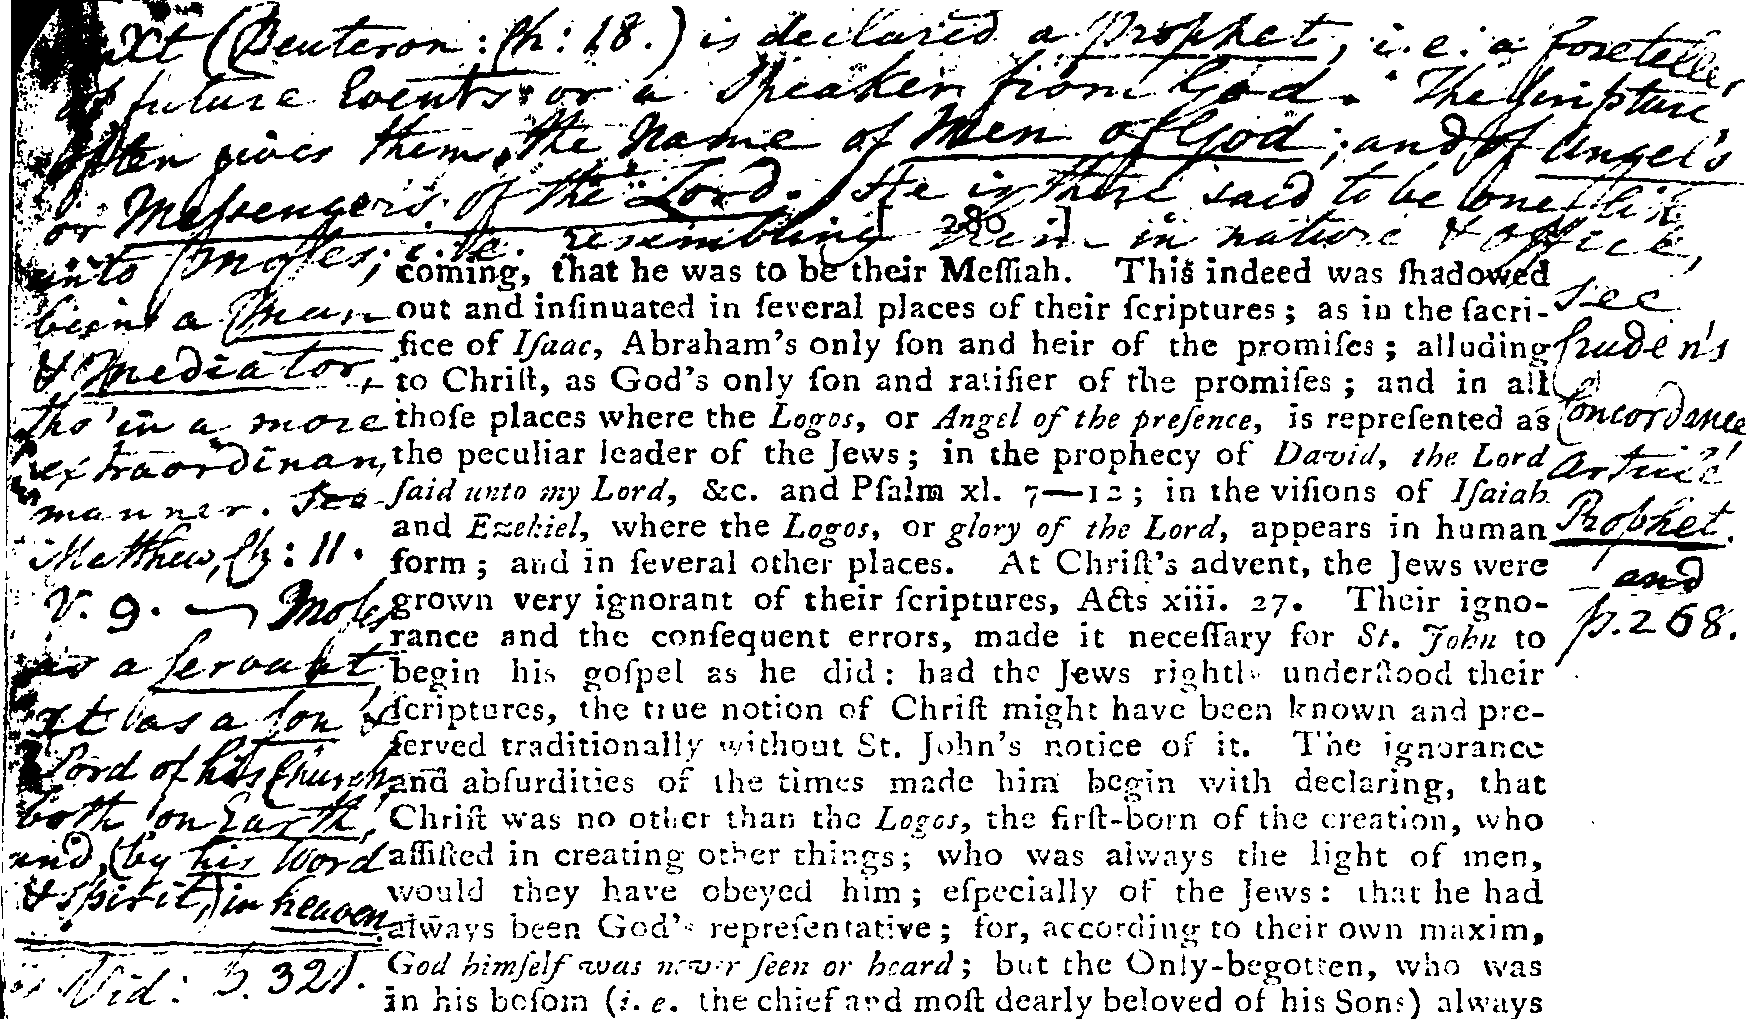 Xt (Deuteron: Ch: 18.) is declared a Prophet, i.e: a foreteller
of future Events or a Speaker from God. The Scripture
often gives them the Name of Men of God; and of Angel's
or Messengers of the Lord. He is there said to be one like
unto Moses; i.e. resembling him in nature & office,
[ 280 ]
being a Man
& Mediator,
tho' in a more
extraordinary
manner. See
Matthew, Ch: 11.
V. 9. — Moses
as a servant
Xt as a son &
Lord of his Church
both on Earth,
and, (by his Word
& spirit,) in heaven
Vid: p. 321.
coming, that he was to be their Meſſiah. This indeed was ſhadowed
out and inſinuated in ſeveral places of their ſcriptures; as in the ſacri-
fice of Iſaac, Abraham's only ſon and heir of the promiſes; alluding
to Chriſt, as God's only ſon and ratifier of the promiſes; and in all
thoſe places where the Logos, or Angel of the preſence, is repreſented as
the peculiar leader of the Jews; in the prophecy of David, the Lord
ſaid unto my Lord, &c. and Pſalm xl. 7—12; in the viſions of Iſaiah
and Ezekiel, where the Logos, or glory of the Lord, appears in human
form; and in ſeveral other places. At Chriſt's advent, the Jews were
grown very ignorant of their ſcriptures, Acts xiii. 27. Their igno-
rance and the conſequent errors, made it neceſſary for St. John to
begin his goſpel as he did: had the Jews rightly underſtood their
ſcriptures, the true notion of Chriſt might have been known and pre-
ſerved traditionally without St. John's notice of it. The ignorance
and abſurdities of the times made him begin with declaring, that
Chriſt was no other than the Logos, the firſt-born of the creation, who
aſſiſted in creating other things; who was always the light of men,
would they have obeyed him; eſpecially of the Jews: that he had
always been God's repreſentative; for, according to their own maxim,
God himſelf was never ſeen or heard; but the Only-begotten, who was
in his boſom (i. e. the chief and moſt dearly beloved of his Sons) always
See
Cruden's
Concordance
Article
Prophet.
and
p. 268.